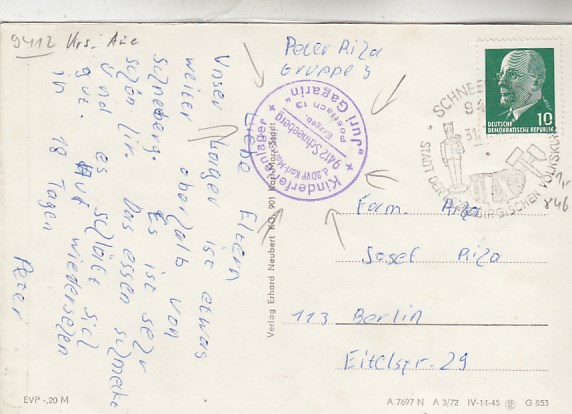 9412 Krs. Aue
Liebe Eltern
Unser Lager ist etwas
weiter oberhalb von
Schneeberg. Es ist sehr
schön hir. Das essen schmeckt
und es schläft sich
gut. Auf wiedersehen
in 18 Tagen
Peter
Peter Riza
Gruppe 3
Kinderferienlager
"Juri Gagarin"
9412 Schneeberg
Postfach 13
d. BDVP Karl-Marx-Stadt
10
DEUTSCHE
DEMOKRATISCHE REPUBLIK
SCHNEE
94
STADT DER ERZGEBIRGISCHEN VOLKSKUNST
Fam. Riza
Josef Riza
113 Berlin
Eitelstr. 29
Verlag Erhard Neubert KG, 901 Karl-Marx-Stadt
EVP -,20 M
A 7697 N A 3/72 IV-14-45 G 853